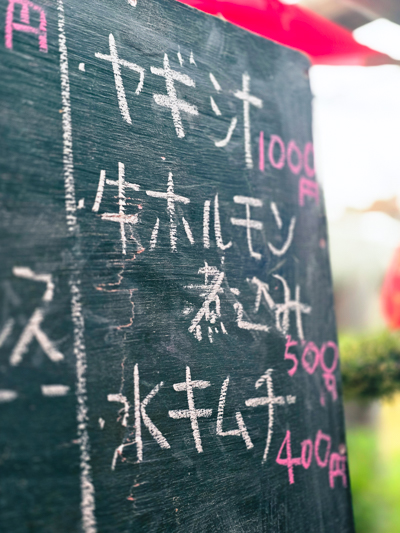 円
・ヤギ汁
1000円
・牛ホルモン
煮込み
500円
・水キムチ
400円
ス
ー